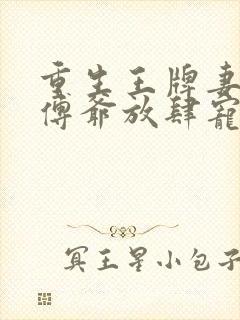 重生王牌妻
傅爷放肆宠
冥王星小包子